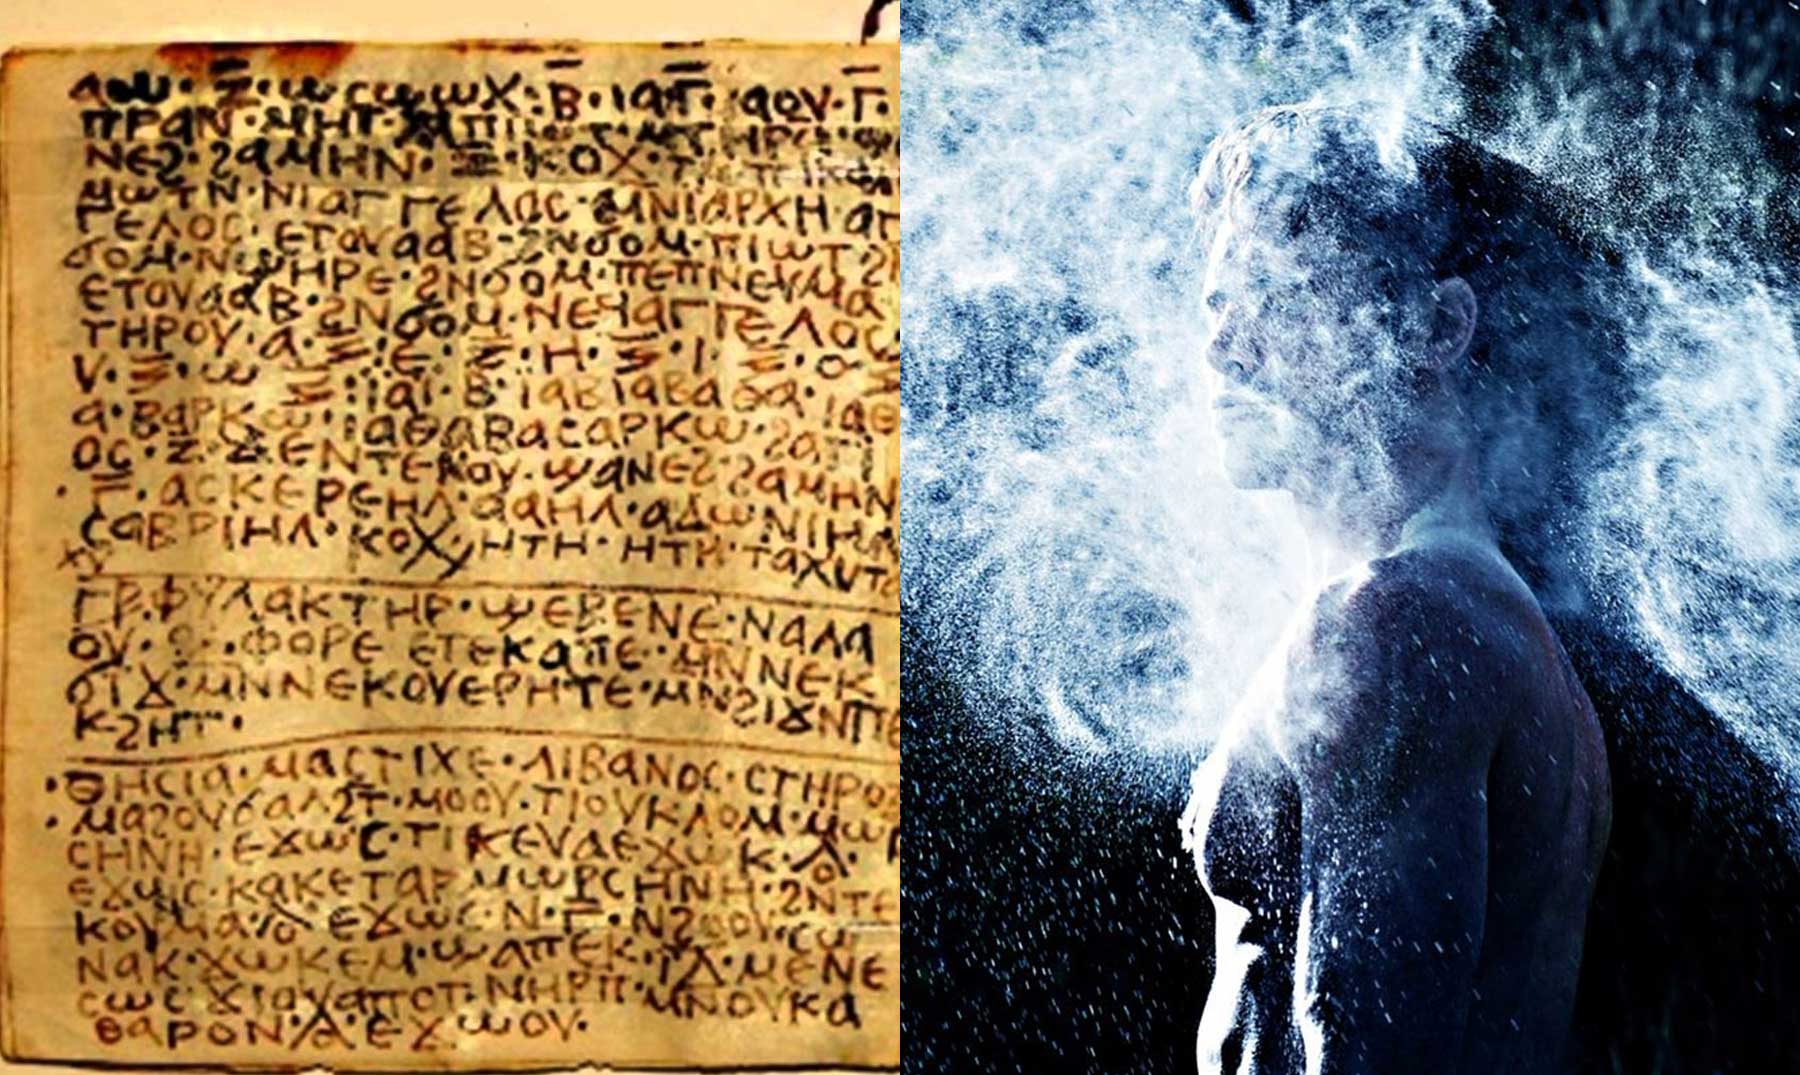 ⲁⲱⲱ · ⲝ · ⲱⲥⲱⲱⲱⲭ · ⲃ · ⲓⲁⲅ · ⲁⲟⲩ · ⲅ ·
ⲡⲣⲁⲛ · ⲙⲏⲧ
ⲛⲉϩ · ϩⲁⲙⲏⲛ · ⲝ · ⲕⲟⲭ ·
ⲙⲱⲧⲛ · ⲛⲓⲁⲅⲅⲉⲗⲟⲥ · ⲙⲛⲓⲁⲣⲭⲏ · ⲁⲅ
ⲅⲉⲗⲟⲥ · ⲉⲧⲟⲩⲁⲁⲃ · ϩⲛϭⲟⲙ · ⲡⲓⲱⲧ · ϩⲛ
ϭⲟⲙ · ⲛϣⲏⲣⲉ · ϩⲛϭⲟⲙ · ⲡⲉⲡⲛⲉⲩⲙⲁ
ⲉⲧⲟⲩⲁⲁⲃ · ϩⲛϭⲟⲙ · ⲛⲉϥⲁⲅⲅⲉⲗⲟⲥ
ⲧⲏⲣⲟⲩ · ⲁ · ⲝ · ⲉ · ⲝ · ⲏ · ⲝ · ⲓ · ⲝ · ⲟ · ⲝ
ⲩ · ⲝ · ⲱ · ⲝ · ⲓⲁⲓ · ⲃ · ⲓⲁⲃⲓⲁⲃⲁⲑⲁ · ⲓⲁⲑ
ⲁ · ⲃⲁⲣⲕⲱ · ⲓⲁⲑⲁⲃⲁⲥⲁⲣⲕⲱ · ϩⲁⲅⲓ
ⲟⲥ · ⲝ · ϫⲉⲛⲧⲉⲕⲟⲩ · ϣⲁⲛⲉϩ · ϩⲁⲙⲏⲛ
· ⲅ · ⲁⲥⲕⲉⲣⲉⲏⲗ · ⲁⲁⲏⲗ · ⲁⲇⲱⲛⲓⲏⲗ
ⲥⲁⲃⲣⲓⲏⲗ · ⲕⲟⲭ · ⲏⲧⲏ · ⲏⲧⲏ · ⲧⲁⲭⲩⲧ
ⲅⲣ · ⲫⲩⲗⲁⲕⲧⲏⲣ · ϣⲉⲃⲉⲛⲉ · ⲛⲁⲗⲁ
ⲟⲩ · ⲫⲟⲣⲉ ⲉⲧⲉⲕⲁⲡⲉ · ⲙⲛⲛⲉⲕ
ϭⲓϫ · ⲙⲛⲛⲉⲕⲟⲩⲉⲣⲏⲧⲉ · ⲙⲛϩⲓϫⲛⲡⲉ
ⲕϩⲏⲧ ·
· ⲑⲏⲥⲓⲁ · ⲙⲁⲥⲧⲓⲭⲉ · ⲗⲓⲃⲁⲛⲟⲥ · ⲥⲧⲏⲣⲟⲝ
· ⲙⲁϩⲟⲩϭⲁⲗϩⲧ · ⲙⲟⲟⲩ · ϯⲟⲩⲕⲗⲟⲙ · ⲙⲱⲣ
ⲥⲏⲛⲏ · ⲉϫⲱⲥ · ϯⲕⲉⲩⲁ ⲉϫⲱⲕ ·
ⲉϫⲱⲥ · ⲕⲁⲕⲉⲧⲁⲣ ⲙⲱⲣⲥⲏⲛⲏ · ϩⲛⲧⲉ
ⲕⲟⲩ ⲉϫⲱⲥ · ⲛ · ⲅ · ⲛϩⲟⲟⲩ · ⲥⲱ
ⲛⲁⲕ · ϫⲱⲕⲉⲙ · ϣⲁⲡⲉⲕ · ⲓⲇ · ⲙⲉⲛⲉ
ⲥⲱⲥ ϫⲓⲟⲩⲁⲡⲟⲧ · ⲛⲏⲣⲡ · ⲙⲛⲟⲩⲕⲁ
ⲑⲁⲣⲟⲛ · ⲁ · ⲉϫⲱⲟⲩ ·